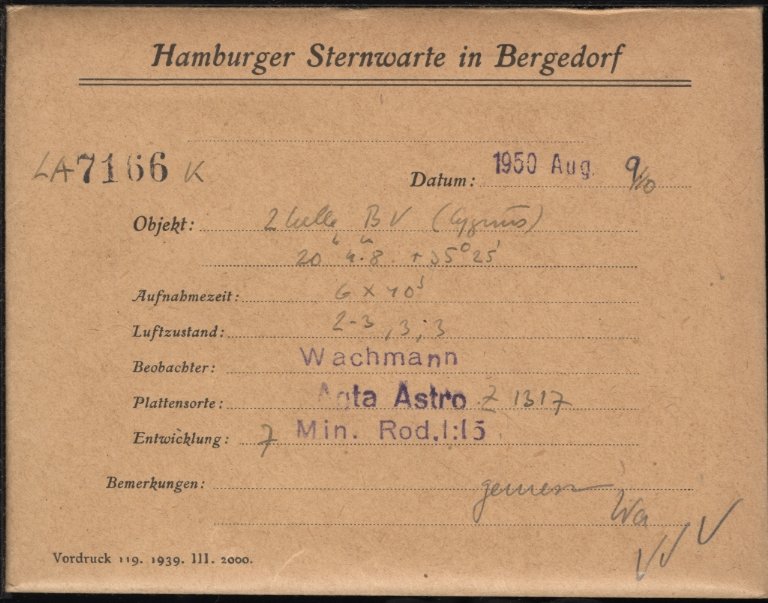 Hamburger Sternwarte in Bergedorf
LA 7166 K
Datum: 1950 Aug. 9/10
Objekt: 2 helle BV (Cygnus)
20h 4m.8 +35° 25'
Aufnahmezeit: 6 × 10s
Luftzustand: 2-3, 3, 3
Beobachter: Wachmann
Plattensorte: Agfa Astro Z 1317
Entwicklung: 7 Min. Rod. 1:15
Bemerkungen: gemessen
Wa
Vordruck 119. 1939. III. 2000.